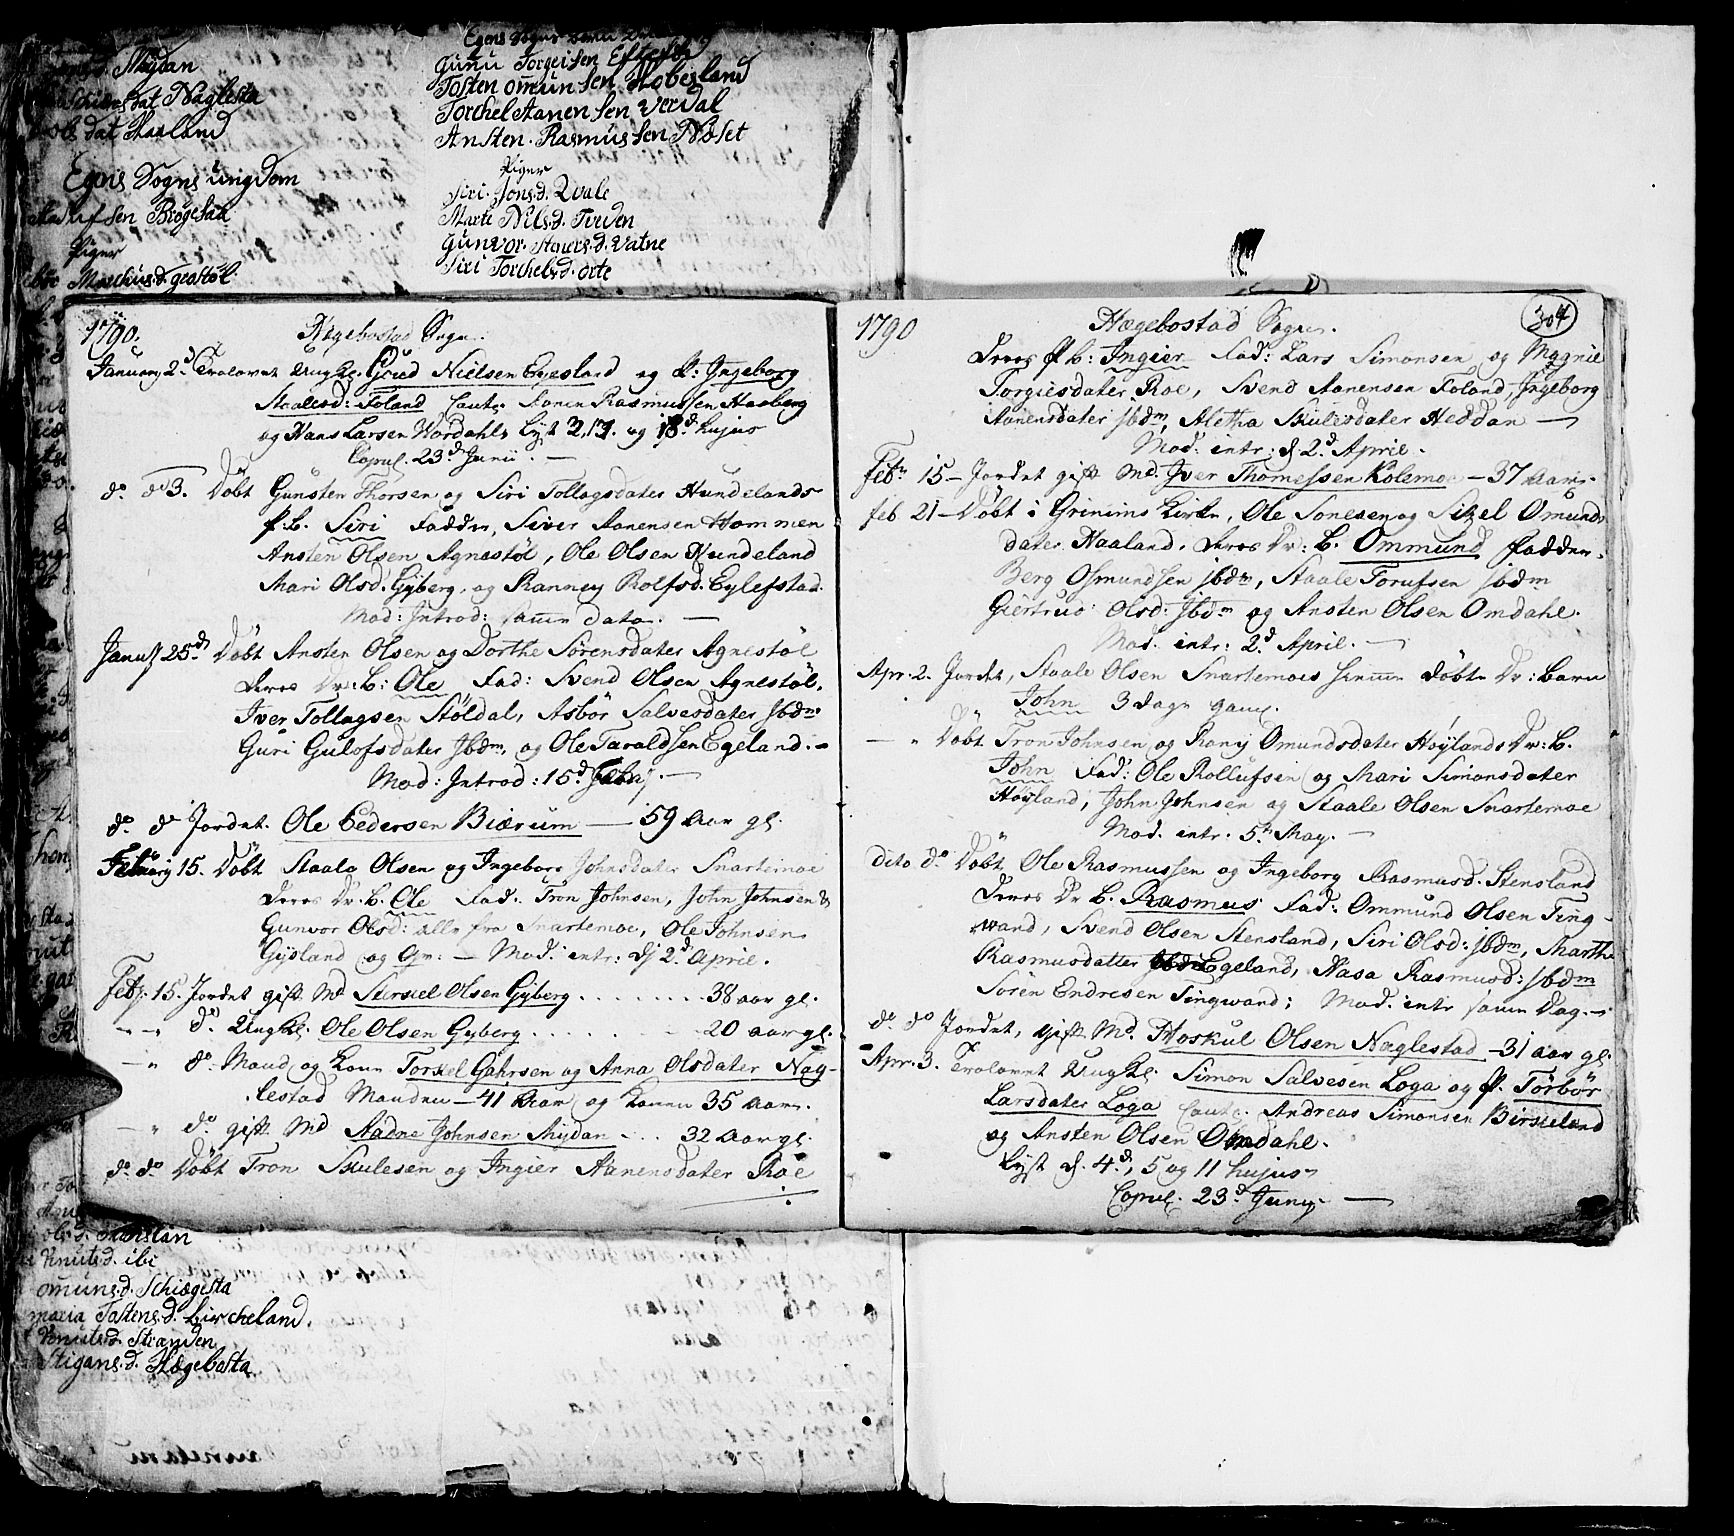 Mÿdan
dat Naglesta
dat Haaland
Egens Sogns ungdom
sen Brøgesaa
Piger
Marchus.d. geostøl
Egens Sogns
Gunu Torgeisen Eftestøl
Tosten omunsen Hobesland
Torchel Aanensen Verdal
Ansten Rasmussen Nøset
Piger
Siri Jons.d. Qvale
Marte Nils.d. Tveden
Gunvor Steners.d. Vatne
Siri Torchels.d. orte
1790. Hægebostad Sogn.
January 2d Trolovet Ungkl. Goud Nielsen Egesland og P: Ingeborg
Staalesd: Foland Caut: Aanen Rasmussen Haaberg
og Hans Larsen Wordahl, Lyst 3, 17. og 18d hujus
Copul. 23d Junii. —
do do 3. Döbt Gunsten Thorsen og Siri Tollagsdater Hundelands
P.B. Siri Faddr, Siver Aanensen Hommen
Ansten Olsen Agnestöl, Ole Olsen Hundeland
Mari Olsd. Gyberg, og Ranney Rolfsd. Eylefstad.
Mod: Introd: samme dato. —
Janur 25de Döbt Ansten Olsen og Dorthe Sörensdater Agnestöl
Deres Dr: B: Ole Fad: Svend Olsen Agnestöl,
Iver Tollagsen Stöldal, Asbör Salvesdater Ibdm
Guri Gulofsdater Ibdm, og Ole Taraldsen Egeland. —
Mod: Introd: 15d Febry. —
do do Jordet. Ole Pedersen Biærum — 59 Aar gl.
February 15. Döbt Staale Olsen og Ingebor Johnsdater Snartemoe
Deres Dr. B. Ole Fad: Tron Johnsen, John Johnsen &
Gunvor Olsd: alle fra Snartemoe, Ole Johnsen
Gysland og Qv: — Mod: intr: d 2d April. —
Feb. 15. Jordet gift Md Sersiel Olsen Gyberg . . . . . . . 38 aar gl.
" " do Ungkl. Ole Olsen Gyberg . . . . . 20 aar gl.
— " do Mand og Kone Torkel Gahrsen og Anna Olsdater Nag-
lestad Manden — 41 Aar og Konen 35 Aar.
— " do gift Md Aadne Johnsen Mydan . . . 32 Aar gl.
do do Döbt Tron Skulesen og Ingier Aanensdater Roe
1790 Hægebostad Sogn. 304
Deres P B: Ingier Fad: Lars Simonsen og Magnil
Torgiesdater Roe, Svend Aanensen Foland, Ingeborg
Aanensdater Ibdm, Aletha Skulesdater Heddan —
Mod: intr: d 2d April.
Febr 15 — Jordet gift Md. Iver Thomessen Kolemo — 37 Aar.
feb 21 — Döbt i Grinims Kirke, Ole Sonesen og Sizel Omunds
dater Haaland. Deres Dr: B. Ommund Fadder.
Berg Osmundsen Ibdm, Staale Torufsen Ibdm
Giertrud Olsd: Ibdm og Ansten Olsen Omdahl.
Mod. intr: 2d April. —
Apr. 2. Jordet, Staale Olsen Snartemoes hiemme döbte Dr: Barn
John 3 dage gaml.
— " Döbt Tron Johnsen og Rony Omundsdater Höylands Dr: B.
John Fad: Ole Rollufsen og Mari Simonsdater
Höyland, John Johnsen og Staale Olsen Snartemoe
Mod. intr: 5te May. —
dito do Döbt Ole Rasmussen og Ingeborg Rasmusd. Stensland
Deres Dr B. Rasmus Fad: Ommund Olsen Ting-
wand, Svend Olsen Stensland, Siri Olsd: Ibdm, Marthe
Rasmusdatter Egeland, Aasa Rasmusd: Ibdm
Sören Endresen Tingwand; Mod. intr samme Dag. —
do do Jordet, gift Md. Hoskul Olsen Naglestad — 31 aar gl.
Apr. 3. Trolovet Ungkl. Simon Salvesen Loga og P. Törbör
Larsdater Loga Caut: Andreas Simonsen Birkeland
og Ansten Olsen Omdahl.
Lyst d. 4d, 5 og 11 hujus
Copul. 23d Juny. —
ols.d. Stenslan
Knuts.d. ibi
omuns.d. Schiægesta
maria Tostens.d. Lircheland.
Knuts.d. Stranden
Stigans.d. Hægebosta